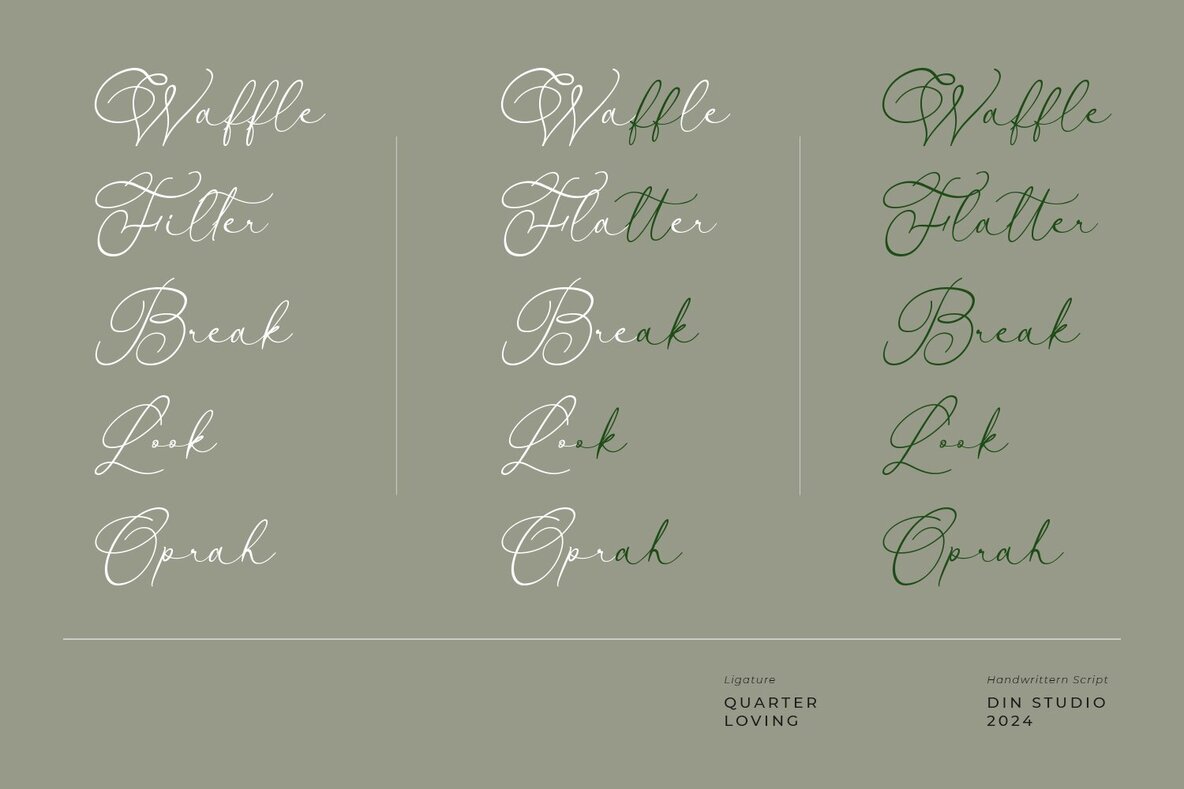 Waffle Waffle Waffle
Filter Flatter Flatter
Break Break Break
Look Look Look
Oprah Oprah Oprah
Ligature
QUARTER
LOVING
Handwrittern Script
DIN STUDIO
2024